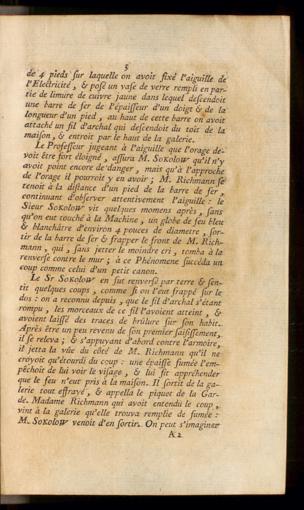 5
de 4 pieds sur laquelle on avoit fixé l'aiguille de
l'Electricité, & posé un vase de verre rempli en par-
tie de limure de cuivre jaune dans lequel descendoit
une barre de fer de l'épaisseur d'un doigt & de la
longueur d'un pied, au haut de cette barre on avoit
attaché un fil d'archal qui descendoit du toit de la
maison, & entroit par le haut de la galerie.
Le Professeur jugeant à l'aiguille que l'orage de-
voit être fort éloigné, assura M. SOKOLOW qu'il n'y
avoit point encore de danger, mais qu'à l'approche
de l'orage il pourroit y en avoir; M. Richmann se
tenoit à la distance d'un pied de la barre de fer,
continuant d'observer attentivement l'aiguille: le
Sieur SOKOLOW vit quelques momens après, sans
qu'on eut touché à la Machine, un globe de feu bleu
& blanchâtre d'environ 4 pouces de diametre, sor-
tir de la barre de fer & frapper le front de M. Rich-
mann, qui, sans jetter le moindre cri, tomba à la
renverse contre le mur; à ce Phénomene succéda un
coup comme celui d'un petit canon.
Le Sr SOKOLOW en fut renversé par terre & sen-
tit quelques coups, comme si on l'eut frappé sur le
dos: on a reconnu depuis, que le fil d'archal s'étant
rompu, les morceaux de ce fil l'avoient atteint, &
avoient laissé des traces de brûlure sur son habit.
Après être un peu revenu de son premier saisissement,
il se releva; & s'appuyant d'abord contre l'armoire,
il jetta la vûe du côté de M. Richmann qu'il ne
croyoit qu'étourdi du coup: une épaisse fumée l'em-
pêchoit de lui voir le visage, & lui fit appréhender
que le feu n'eut pris à la maison. Il sortit de la ga-
lerie tout effrayé, & appella le piquet de la Gar-
de. Madame Richmann qui avoit entendu le coup,
vint à la galerie qu'elle trouva remplie de fumée:
M. SOKOLOW venoit d'en sortir. On peut s'imaginer
A 2